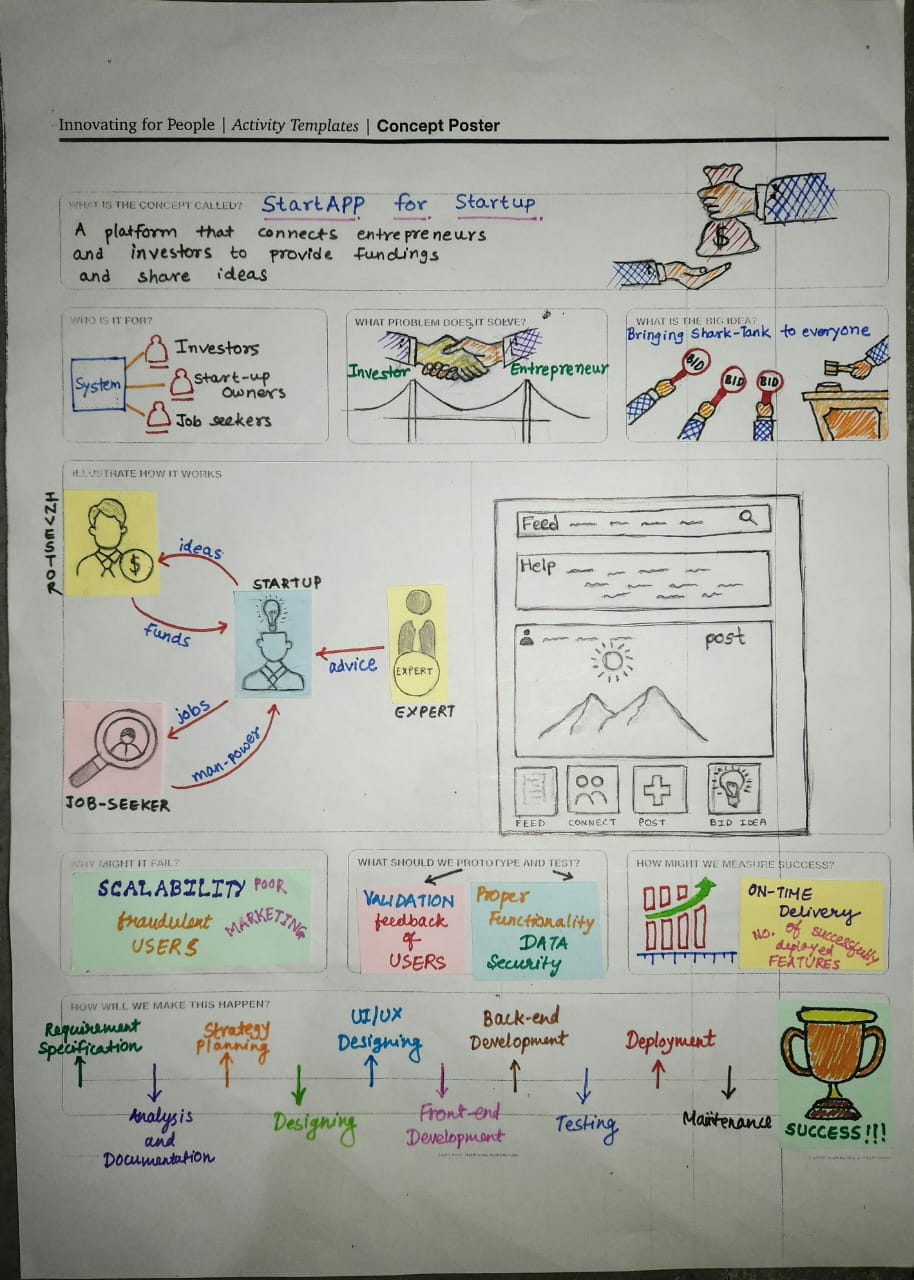 Innovating for People | Activity Templates | Concept Poster
WHAT IS THE CONCEPT CALLED? StartAPP for Startup
A platform that connects entrepreneurs
and investors to provide fundings
and share ideas
$
WHO IS IT FOR?
System
Investors
Start-up
Owners
Job seekers
WHAT PROBLEM DOES IT SOLVE?
Investor
Entrepreneur
WHAT IS THE BIG IDEA?
Bringing Shark-Tank to everyone
BID
BID
BID
ILLUSTRATE HOW IT WORKS
INVESTOR
$
ideas
funds
STARTUP
advice
EXPERT
EXPERT
jobs
man-power
JOB-SEEKER
Feed
Help
post
FEED
CONNECT
POST
BID IDEA
WHY MIGHT IT FAIL?
SCALABILITY
POOR
MARKETING
fraudulent
USERS
WHAT SHOULD WE PROTOTYPE AND TEST?
VALIDATION
feedback
of
USERS
Proper
Functionality
DATA
Security
HOW MIGHT WE MEASURE SUCCESS?
ON-TIME
Delivery
NO. of successfully
deployed
FEATURES
HOW WILL WE MAKE THIS HAPPEN?
Requirement
Specification
Analysis
and
Documentation
Strategy
Planning
Designing
UI/UX
Designing
Front-end
Development
Back-end
Development
Testing
Deployment
Maintenance
SUCCESS!!!